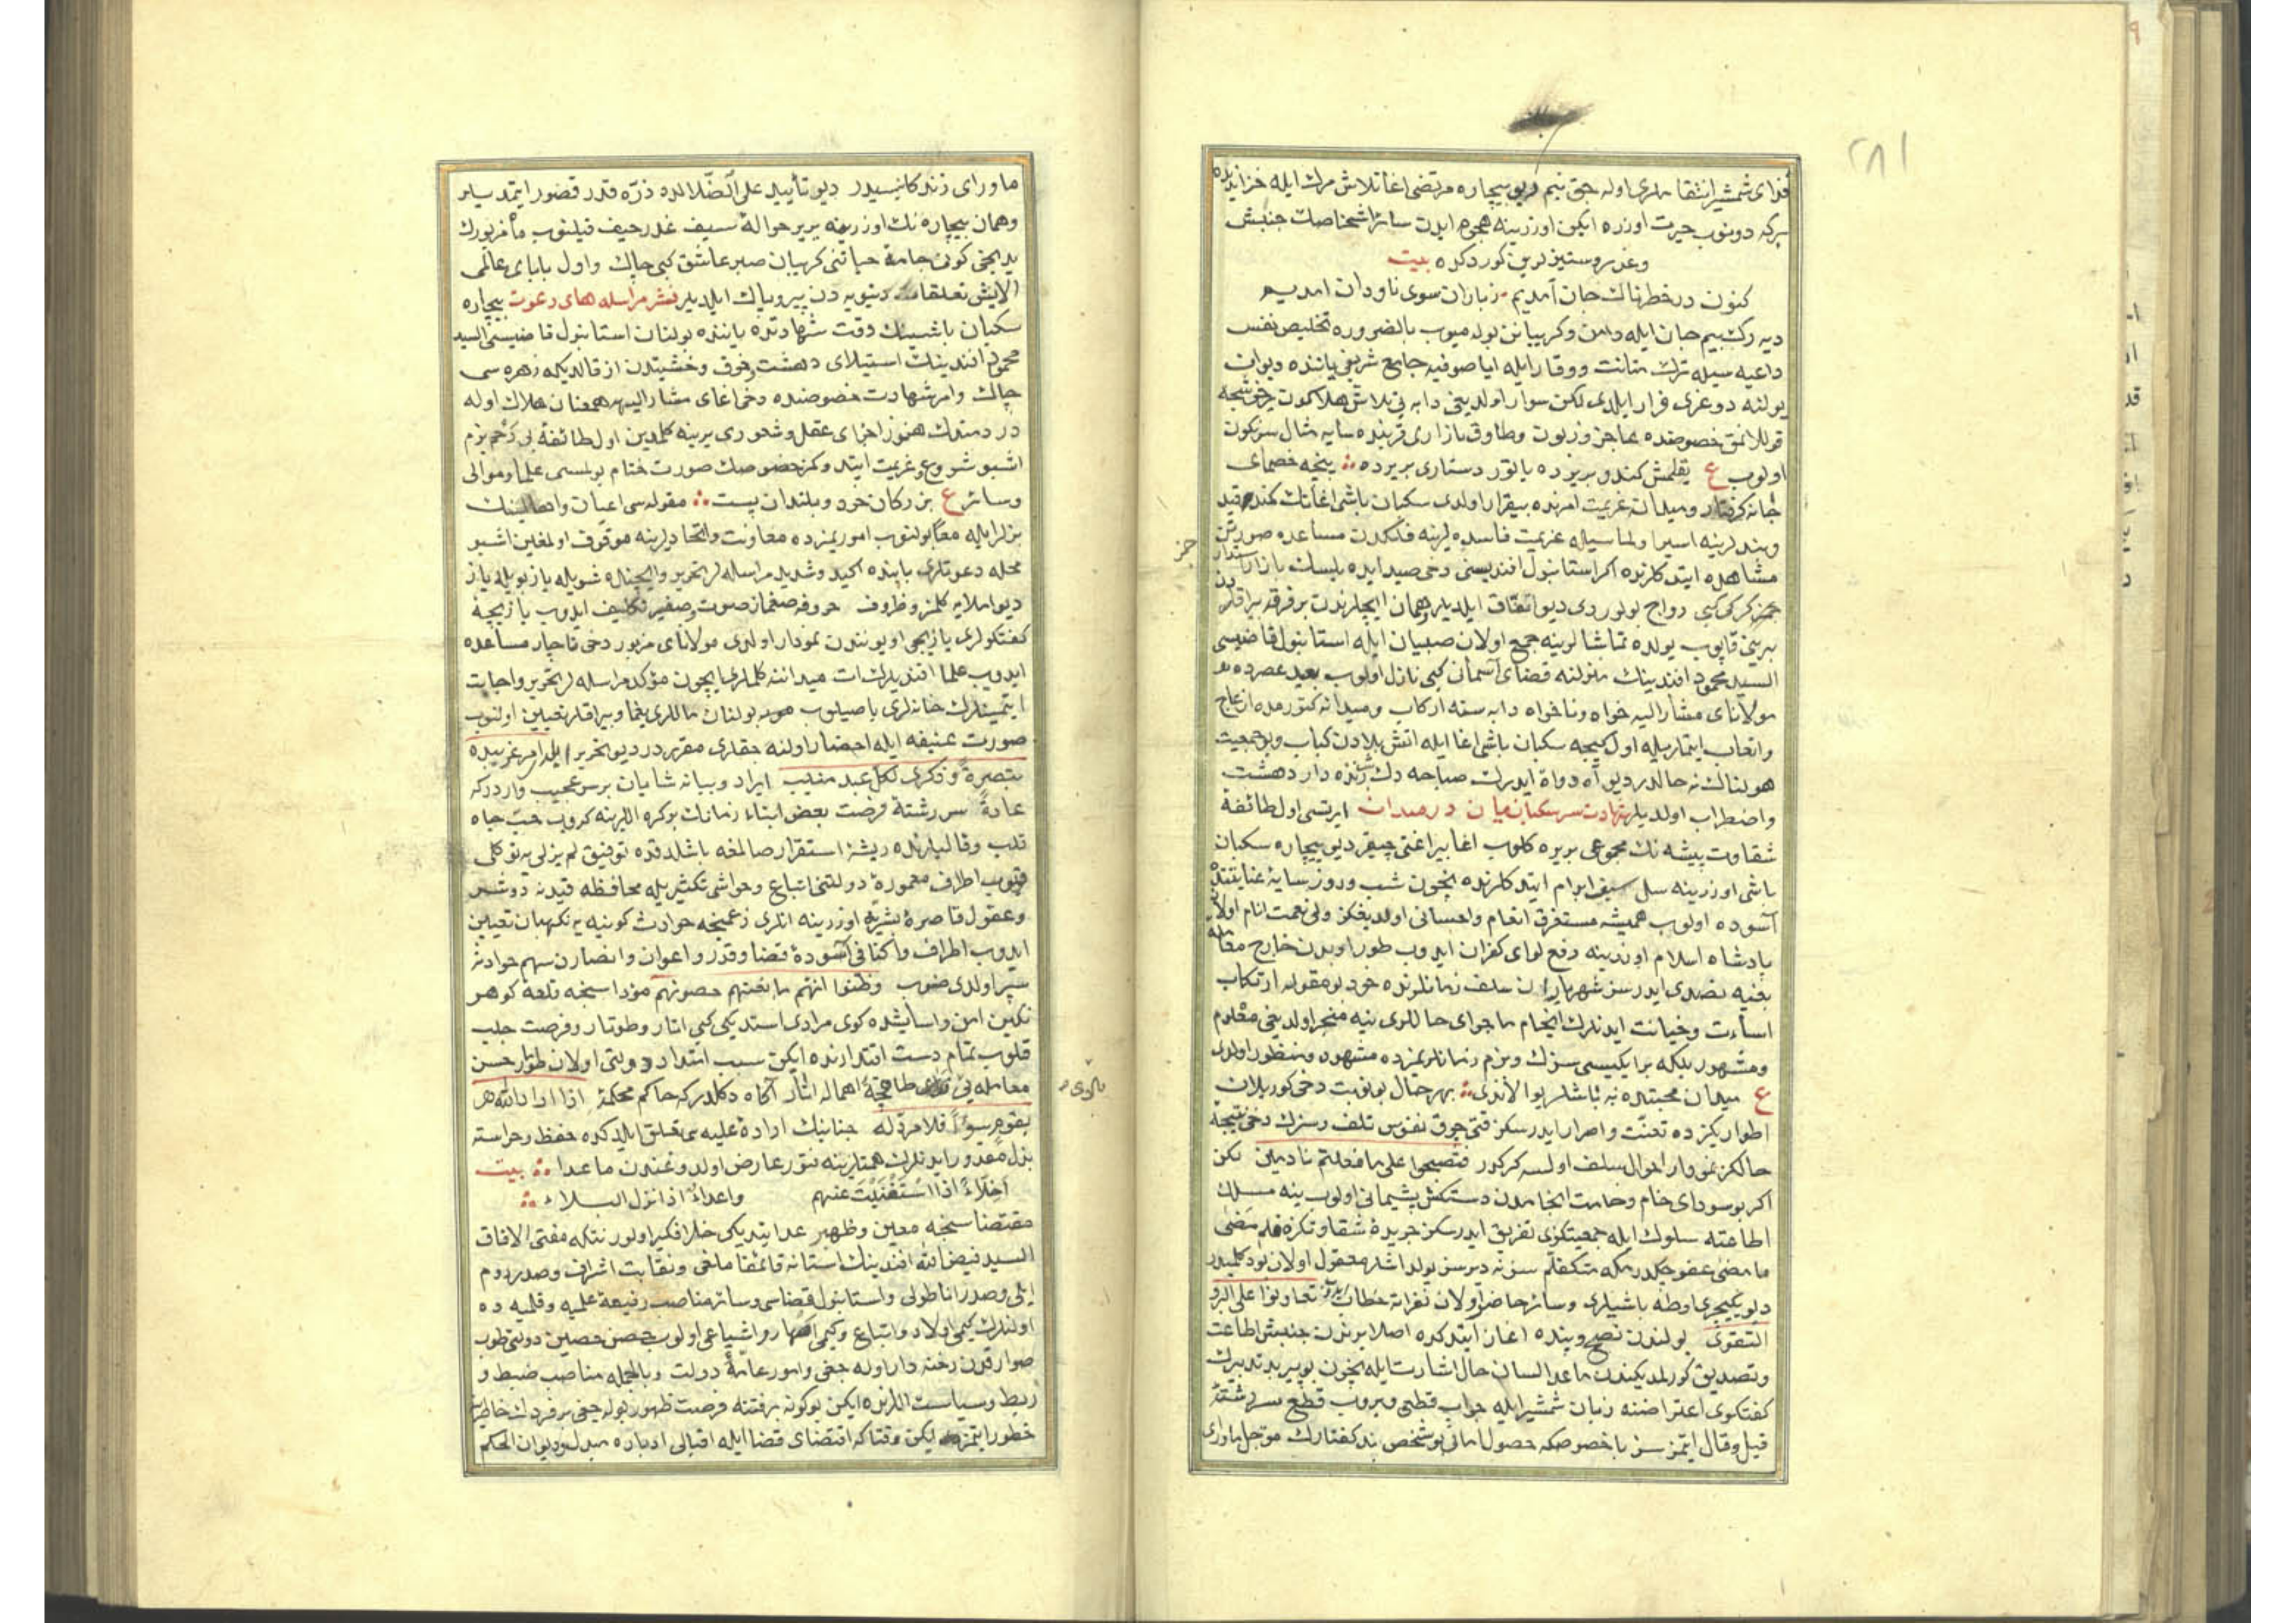 ٢٨١
فدای شمشیر انتقاملری اوله جق نیم دیو بیچاره مرتضی اغا تلاش مرك ایله خزانه
سرکه دونوب حیرت اوزره ایکن اوزرینه هجوم ایدن سائر اشخاصك جنبش
وعد کوردکده بیت
کنون در خطرناك جان آمدیم زباران سوی ناودان امدیم
دیه رك بیم جان ایله دامن وکریبانن بوله میوب بالضروره تخلیص نفس
داعیه سیله ترك متانت ووقار ایله ایا صوفیه جامع شریفی یاننده دیوان
یولنه دوغری فرار ایلدی لکن سوار اولدیغی دابه نی تلاش هلاکون
قوللانمق خصوصنده عاجز وزبون وطاوق بازاری قربنده سایه مثال سرنکون
اولوب ع یقلمش کندو بریرده یاتور دستاری بریرده پنجه خصمای
جانه کرفتار ومیدان عزیمت امرنده بیقرار اولدی سکبان باشی اغانك کند وقید
وبندلرینه اسیر اولماسیله عزیمت فاسده لرینه فلکدن مساعده صورتن
مشاهده ایتدکلرنده اکر استانبول افندیسنی دخی صید ایده بیلسك بازار
کبی رواج بولوردی دیو اتفاق ایلدیلر همان ایچلرندن بر فرقه بیراقلر
برینی قاپوب یولده تماشا لرینه جمع اولان صبیان ایله استانبول قاضیسی
السید محمود افندینك منزلنه قضای آسمان کبی نازل اولوب بعید عصرده
مولانای مشار الیه خواه وناخواه دابه سنه ارکاب ومیدانه کتورمده ازعاج
واتعاب ایتمار یله اول کیجه سکبان باشی اغا ایله اتش بلادن کباب وبو جمعیت
هولناك نه حالدر دیو آه وواه ایدرك صباحه دك زنده دار دهشت
واضطراب اولدیلر شهادت سر سکبانیان در میدان ایرتسی اول طائفۀ
شقاوت پیشه نك مجموعی بریره کلوب اغا بیراغنی چیقر دیو بیچاره سکبان
باشی اوزرینه سل سیف ابرام ایتدکلرنده انچون شب وروز سایۀ عنایتنده
آسوده اولوب همیشه مستغرق انعام واحسانی اولدیغکز ولی نعمت انام اولان
پادشاه اسلام اوزرینه رفع لوای کفران ایدوب طور اوبدن خارج معامله
بغیه تصدی ایدرسز شهریاران سلف زمانلرنده خود بومقوله ارتکاب
اساءت وخیانت ایدنلرك انجام ماجرای حاللری نیه منجر اولدیغی معلوم
ومشهور بلکه برایکیسی سزك وبزم زمانلریمزده مشهود ومنظور اولدی
ع میدان محبتده نه باشلر یوالاندی بهر حال بو نوبت دخی کوریلان
اطوارکزده تعنت واصرار ایدرسکز قتی چوق نفوس تلف وسزك دخی نتیجۀ
حالکز نمودار احوال سلف اولسه کرکدر فتصبحوا علی ما فعلتم نادمین لکن
اکر بو سودای خام وخامت انجامدن دستکش پشیمانی اولوب ینه مسلك
اطاعته سلوك ایله جمعیتکزی تفریق ایدرسکز جریدۀ شقاوتکزه قلم مضی
ما مضی عفو چکدرمکه متکفلم سز نه دیرسز یولداشلر معقول اولان بودکلمیدر
دیو یکیچری اوطه باشیلری وسائر حاضر اولان نفراته خطاب ایدوب تعاونوا علی البر و
التقوی یولندن نصح وپنده اغاز ایتدکده اصلا برندن جنبش اطاعت
وتصدیق کورلمدیکندن ماعدا لسان حال اشارت ایله انچون بو پیر بد تدبیرك
کفتکوی اعتراضنه زبان شمشیر ایله جواب قطعی ویروب قطع سر رشتۀ
قیل وقال ایتمزسز با خصوصکه حصول امانی بو شخص بند کفتارك موتی ماورای
ماورای زندکانیسیدر دیو تأیید علی الضلالده ذره قدر قصور ایتمدیلر
وهمان بیچاره نك اوزرینه بربر حوالۀ سیف غدر حیف قیلنوب مأمزبورك
یدنجی کون جامۀ حیاتنی کریبان صبر عاشق کبی چاك واول بابای عالمی
الایش تعلقات دنیویه دن پیر وپاك ایلدیلر نشر مراسله های دعوت بیچاره
سکبان باشینك وقت شهادتده یاننده بولنان استانبول قاضیسی السید
محمود افندینك استیلای دهشت وخوف وخشیتدن از قالدیکه زهره سی
چاك وامر شهادت خصوصنده دخی اغای مشار الیهه همعنان هلاك اوله
در دمتدك هنوز اجزای عقل وشعوری یرینه کلمدین اول طائفۀ بی رحم بزم
اشبو شروع وعزیمت ایتدوکمز خصوصك صورت ختام بولمسی علما وموالی
وسائر ع بزرکان خرد وبلندان پست مقوله سی اعیان واهالینك
بزلر ایله معا بولنوب اموریمزده معاونت واتحادلرینه موقوف اولمغین اشبو
محله دعوتلری بابنده اکید وشدید مراسله لر تحریر وایچنده شویله یاز بویله یاز
دیو املایه کلمز وظروف حروفه صغماز صوت وصفیر تکلیف ایدوب یازیجیۀ
کفتکولری یازیجی اویونندن نمودار اولدی مولانای مزبور دخی ناچار مساعده
ایدوب علما افندیلرك ات میداننه کلملری ایچون مؤکد مراسله لر تحریر واجابت
ایتمینلرك خانه لری باصیلوب بولنان ماللری یغما وبیراقلر تعیین اولنوب
صورت عنیفه ایله احضار اولنه جقلری مقرردر دیو تحریر ایلدی امر غریبده
تبصرة وذکری لکل عبد منیب ایراد وبیانه شایان بر سر عجیب واردرکه
عادة سر رشتۀ فرصت بعض ابناء زمانك بوکره اللرینه کروب حب جاه
قلب وقالبلرنده ریشۀ استقرار صالمغه باشلدقده توفیق لم یزلی یه توکلی
قیوب اطراف معمورۀ دولتنی اتباع وحواشی تکثیریله محافظه قیدنه دوشر
وعقول قاصرۀ بشریه اوزرینه انلری زعمنجه حوادث کونیه یه نکهبان تعیین
ایدوب اطراف واکنافی آسودۀ قضا وقدر واعوان وانصارن سهم حوادثه
سپر اولدی صنوب وظنوا انهم مانعتهم حصونهم مؤداسنجه قلعۀ کوهر
نکین امن واسایشده کوی مرادی استدیکی کبی اتار وطوتار وفرصت جلب
قلوب تمام دست اقتدارنده ایکن سبب امتداد دولتی اولان طور حسن
معامله یی طاقچۀ اهماله اتار آکاه دکلدرکه حاکم محکمۀ اذا اراد الله
بقوم سوءا فلا مرد له جنابنك ارادۀ علیه سی تعلق ایلدکده حفظ وحراسته
بذل مقدور ایدنلرك همتلرینه فتور عارض اولدوغندن ماعدا بیت
اخلاء اذا استغنیت عنهم واعداء اذا نزل البلاء
مقتضاسنجه معین وظهیر عد ایتدیکی خار افکنر اولور نتکه مفتی الافاق
السید فیض الله افندینك استانه قائمقاملغی ونقابت اشراف وصدر روم
ایلی وصدر اناطولی واستانبول قضاسی وسائر مناصب رفیعۀ علمیه وقلمیه ده
اولنلرك کیمی اولاد واتباع وکیمی اصهار واشیاعی اولوب حصن حصین دولتی طوب
صوارقدن رخنه دار اوله جغی وامور عامۀ دولت وبالجمله مناصب ضبط و
ربط وسیاست اللرنده ایکن بوکونه بر فتنه فرصت ظهور بوله جغی بر فردك خاطرینه
خطور ایتمز ایکن وقتاکه اقتضای قضا ایله اقبالی ادباره مبدل ودیوان الحکم